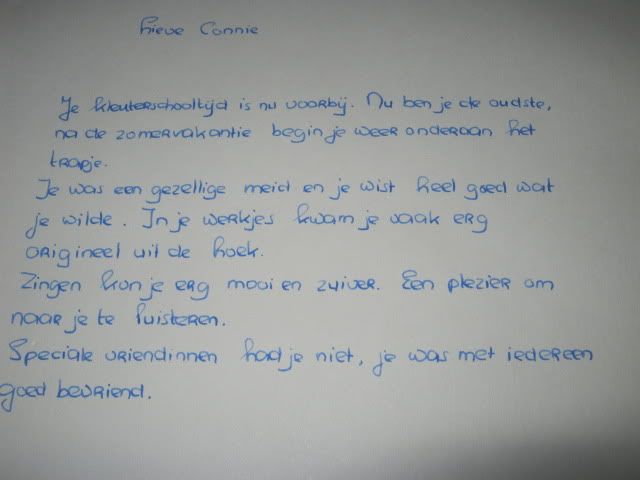 Lieve Connie
Je kleuterschooltijd is nu voorbij. Nu ben je de oudste,
na de zomervakantie begin je weer onderaan het
trapje.
Je was een gezellige meid en je wist heel goed wat
je wilde. In je werkjes kwam je vaak erg
origineel uit de hoek.
Zingen kon je erg mooi en zuiver. Een plezier om
naar je te luisteren.
Speciale vriendinnen had je niet, je was met iedereen
goed bevriend.